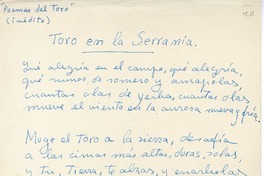 "Poemas del Toro"
(inédito)
Toro en la Serranía.
Qué alegría en el campo, qué alegría,
qué rumor de romero y amapolas,
cuántas olas de yerba, cuántas olas
mueve el viento en la aurora nueva y fría.
Muge el toro a la sierra, desafía
a las cimas más altas, duras, solas,
y tú, Tierra, te alzas, y enarbolas